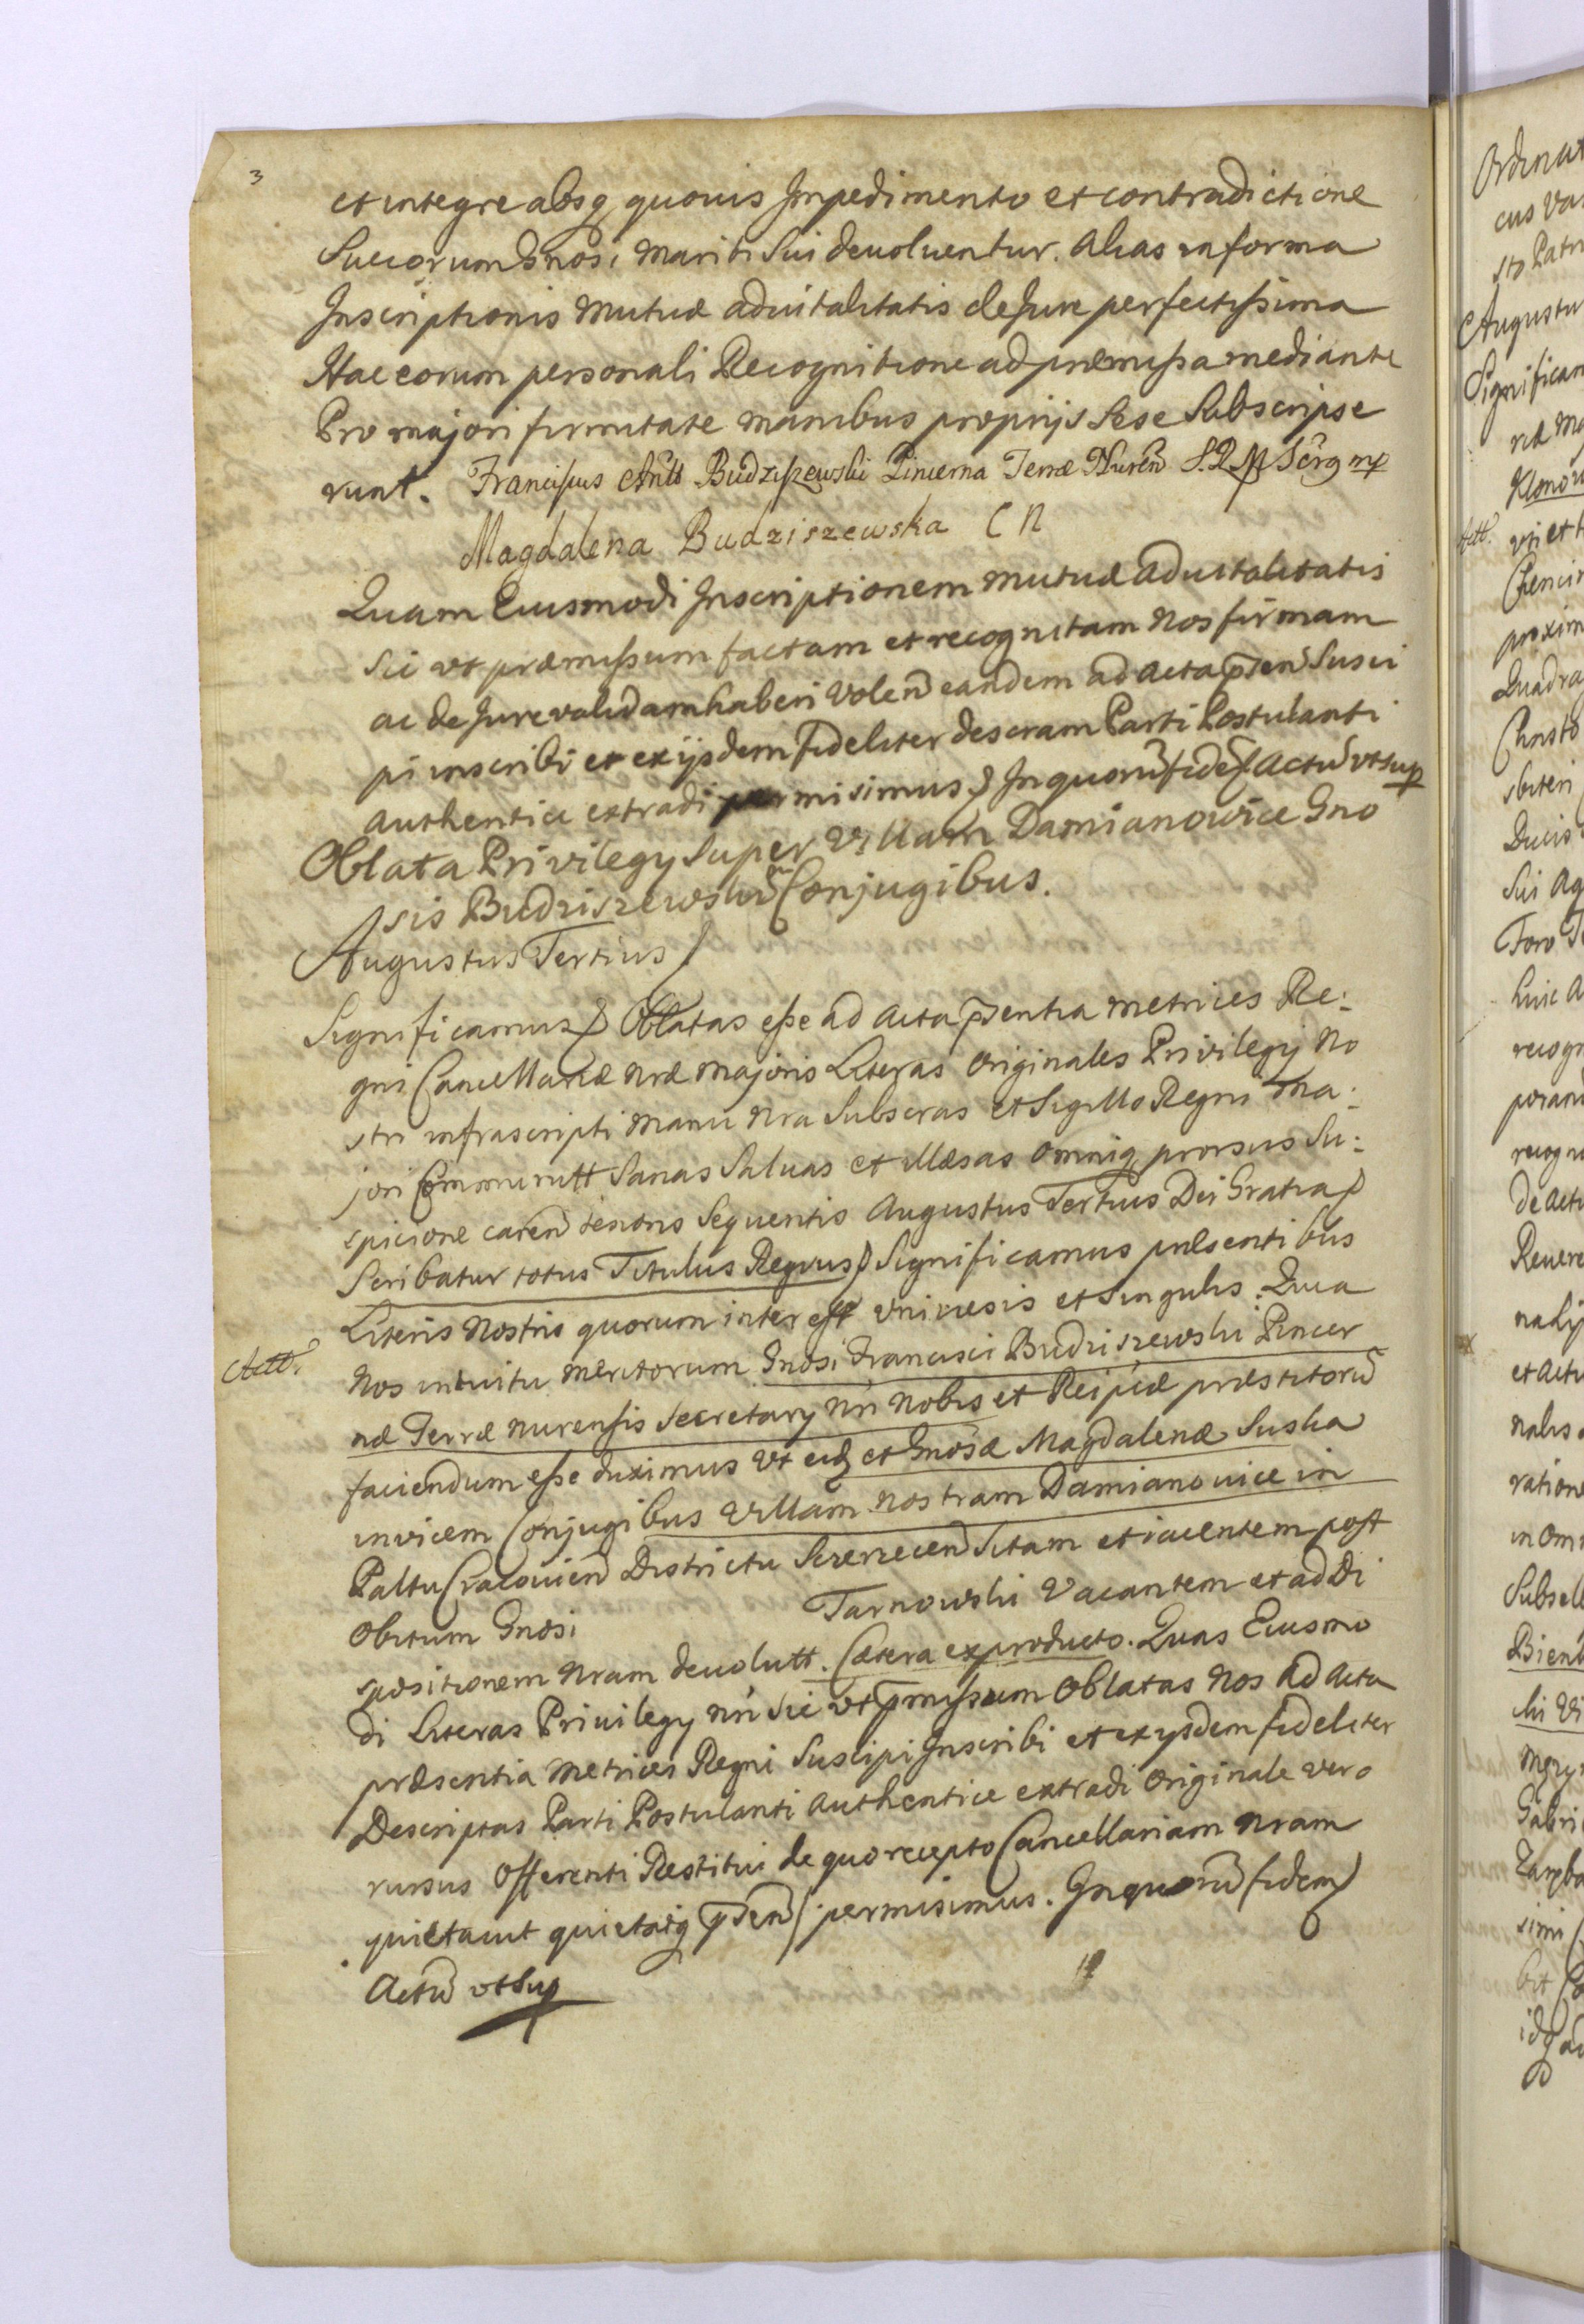 3
et integre absq quouis Impedimento et contradictione
Succorum Gnosi Mariti Sui deuoluentur. Alias in forma
Inscriptionis Mutuæ aduitalitatis de Jure perfectissima
Hac eorum personali Recognitione ad præmissa mediante
Pro majori firmitate manibus proprijs Sese Subscripse
runt. Franciscus Budziszewski Pincerna Terræ Nuren mp
Magdalena Budziszewska C N
Quam Eiusmodi Inscriptionem mutuæ aduitalitatis
Sic vt præmissum factam et recognitam Nos firmam
ac de Jure validam haberi Volen eandem ad Acta pñten Susci
pi inscribi et ex ijsdem fideliter descram Parti Postulanti
Authentice extradi permisimus In quorũ fidẽ Actũ vt sup
Oblata Privilegy Super Villam Damianowice Gno
sis Budziszewskie Conjugibus.
Augustus Tertius
Significamus Oblatas esse ad Acta pñtentia Metrices Re:
gni Cancellariæ Nræ Majoris Literas Originales Privilegij No
stri infrascripti Manu Nra Subscras et Sigillo Regni Ma:
jori Communitt Sanas Saluas et illæsas omniq prorsus Su:
spicione caren tenoris Sequentis Augustus Tertius Dei Gratia
Scribatur totus Titulus Regius Significamus præsentibus
Literis Nostris quorum interest Vniuersis et Singulis. Quia
Nos intuitu meritorum Gnosi Francisci Budziszewski Pincer
næ Terræ Nurensis Secretary Nri Nobis et Reipcæ præstitorũ
faciendum esse duximus vt eid et Gnosæ Magdalenæ Suska
invicem Conjugibus Villam Nostram Damianouice in
Paltu Cracouien Districtu Szerzecen Sitam et iacentem post
Obitum Gnosi Tarnowski Vacantem et ad Di
spositionem Nram deuolutt. Cætera ex producto. Quas Eiusmo
di Literas Priuilegy Nri Sic vt pmissum Oblatas Nos ad Acta
præsentia Metrices Regni Suscipi Inscribi et ex ysdem fideliter
Descriptas Parti Postulanti Authentice extradi Originale vero
rursus Offerenti Restitui de quo recepto Cancellariam Nram
quietauit quietatq pñten permisimus. In quorũ fidem
Actũ vt Sup